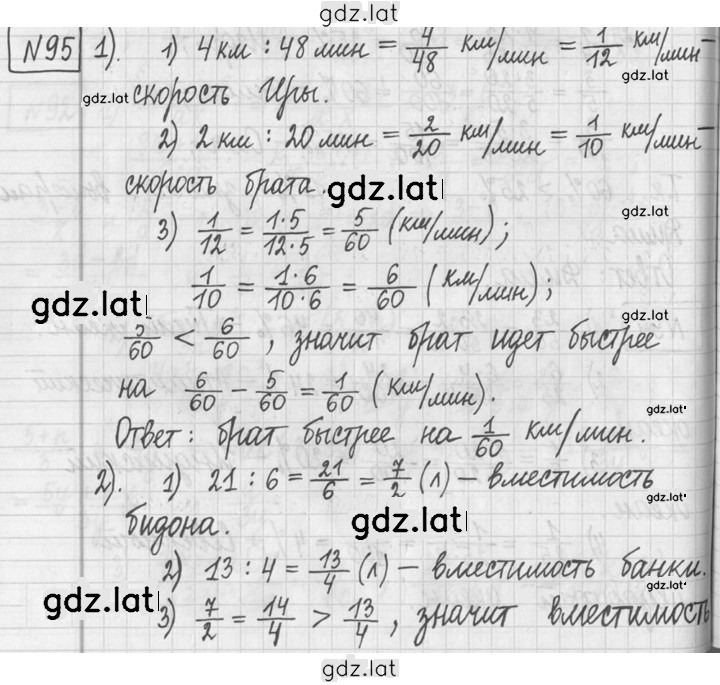 gdz.lat
№95 1). 1) 4км : 48 мин = 4/48 км/мин = 1/12 км/мин –
gdz.lat
gdz.lat скорость Иры.
2) 2 км : 20 мин = 2/20 км/мин = 1/10 км/мин –
скорость брата.
gdz.lat
gdz.lat
3) 1/12 = 1·5/12·5 = 5/60 (км/мин);
1/10 = 1·6/10·6 = 6/60 (км/мин);
gdz.lat
gdz.lat
5/60 < 6/60, значит брат идет быстрее
на 6/60 – 5/60 = 1/60 (км/мин).
gdz.lat
Ответ: брат быстрее на 1/60 км/мин.
2). 1) 21 : 6 = 21/6 = 7/2 (л) – вместимость
gdz.lat
бидона.
gdz.lat
2) 13 : 4 = 13/4 (л) – вместимость банки.
gdz.lat
gdz.lat
3) 7/2 = 14/4 > 13/4, значит вместимость
gdz.lat